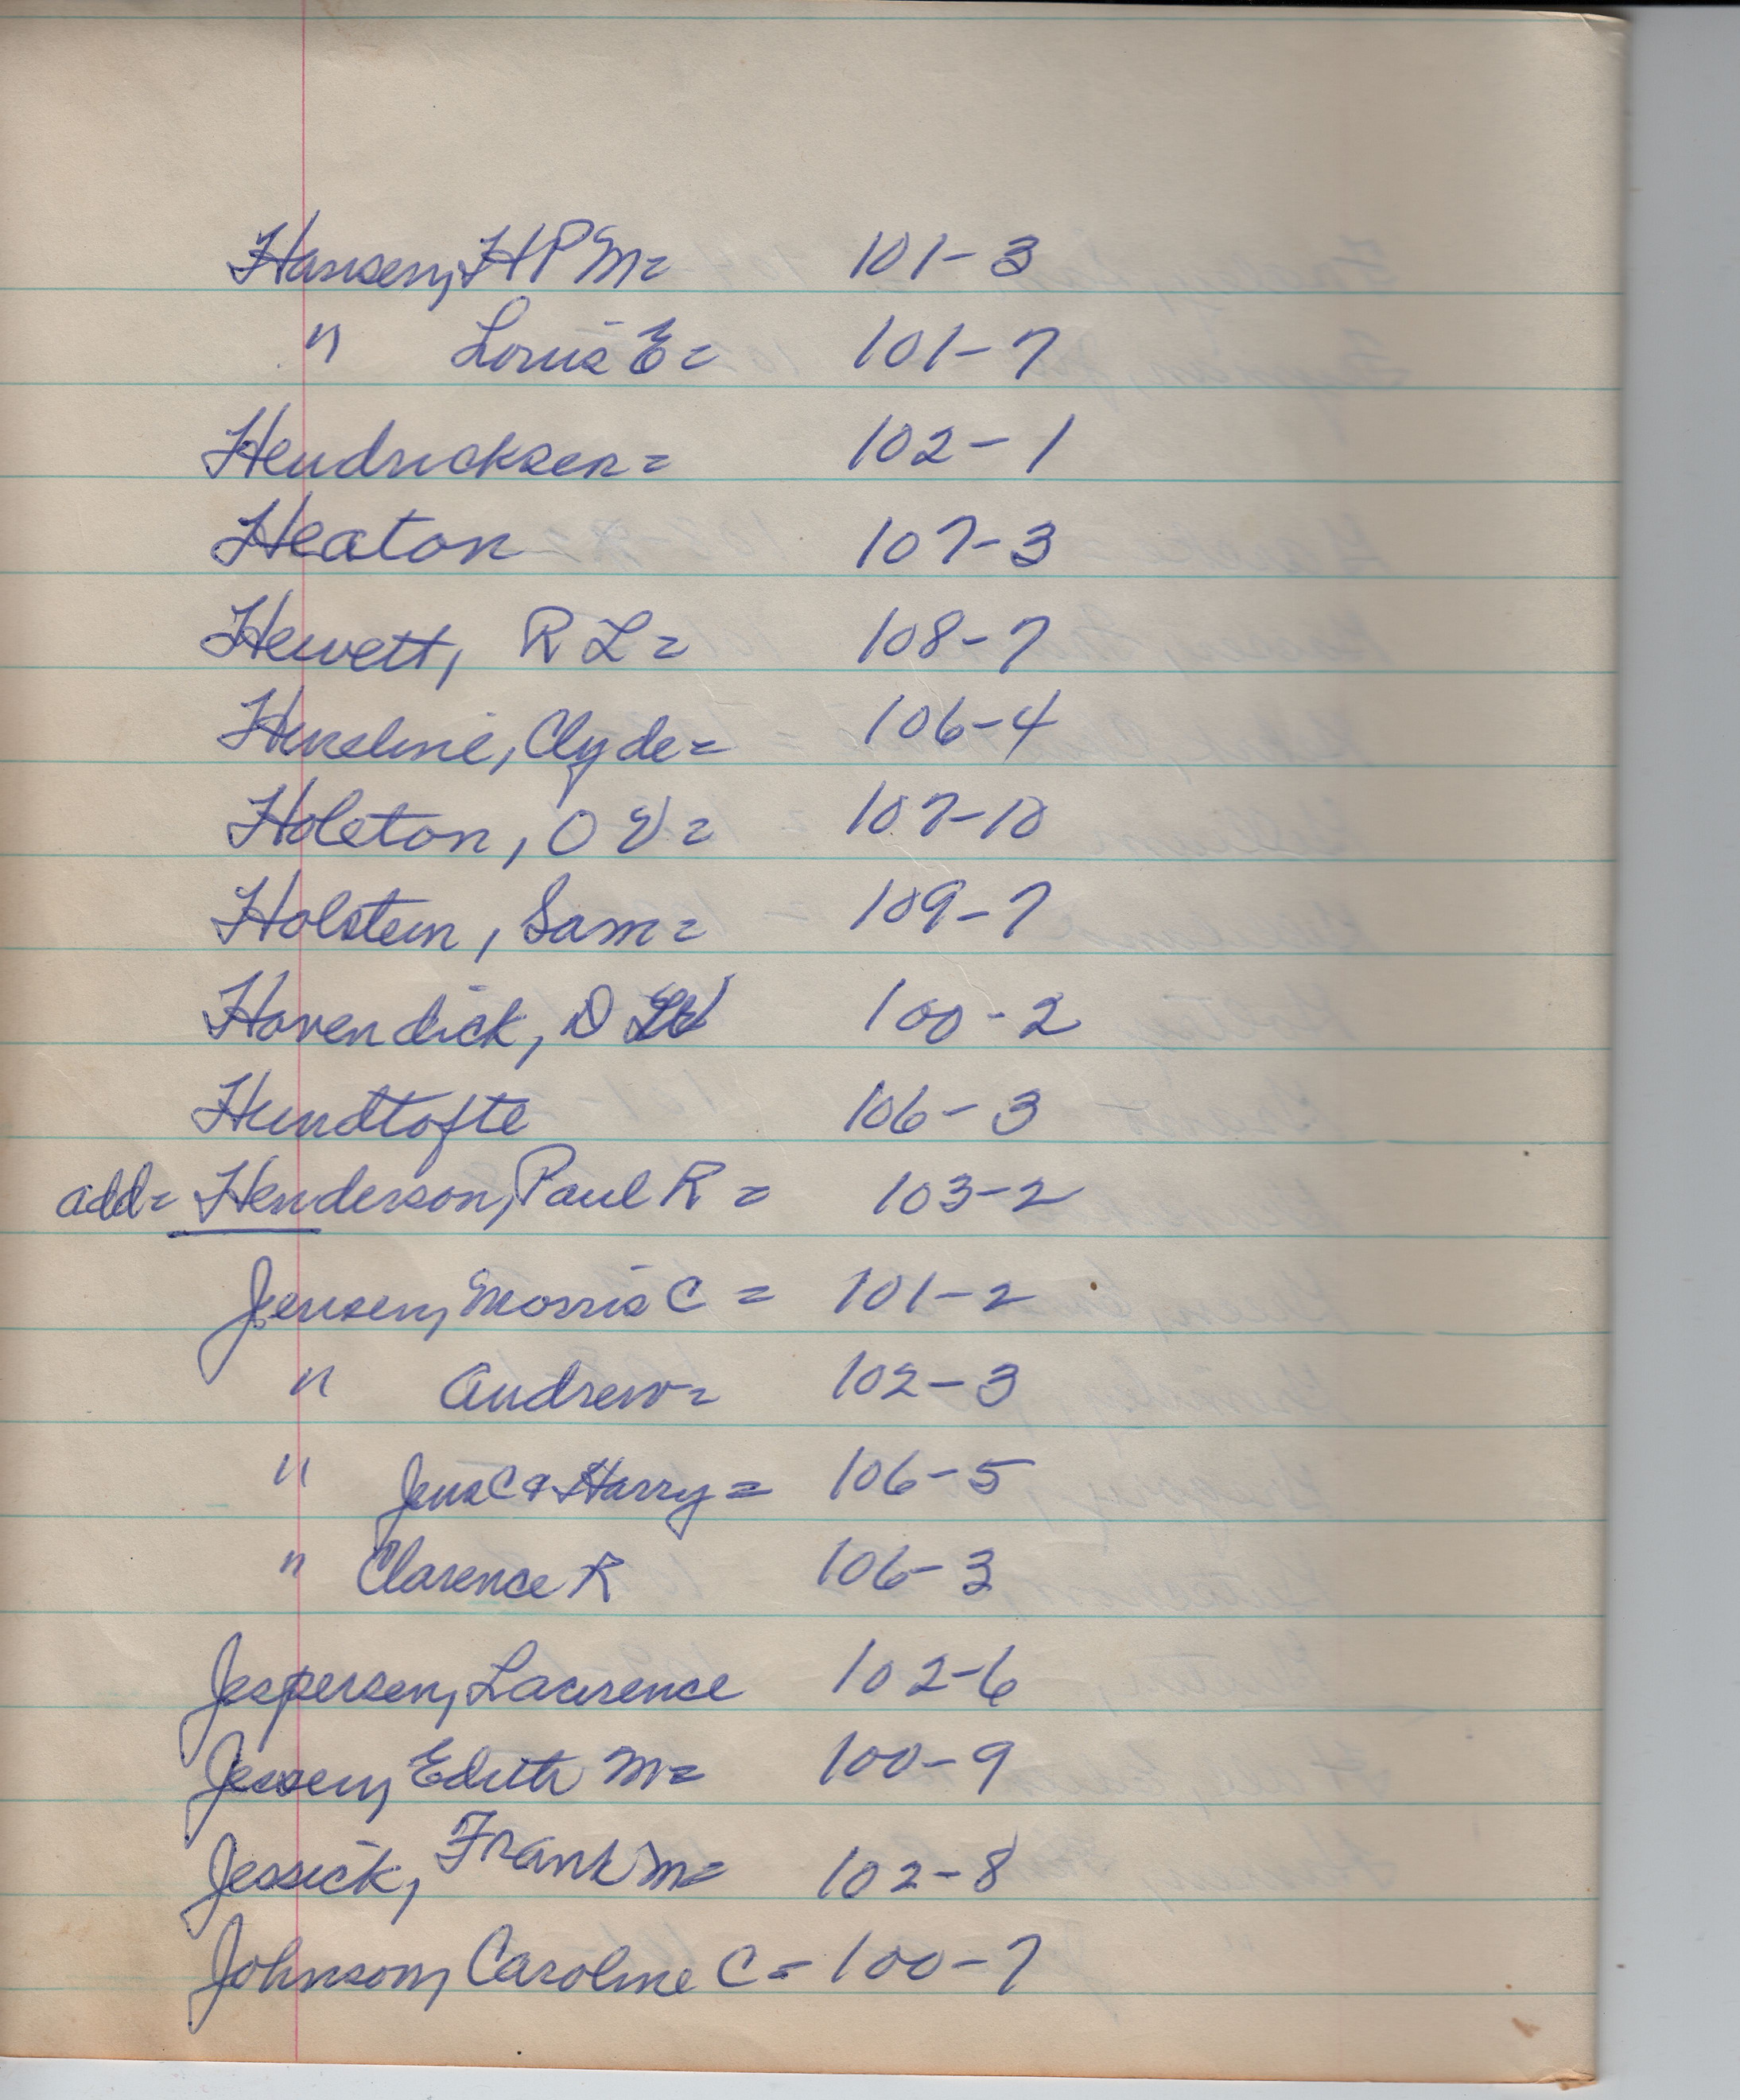 Hansen, H P M = 101-3
" Louis E = 101-7
Hendricksen = 102-1
Heaton 107-3
Hewett, R L = 108-7
Hinsline, Clyde = 106-4
Holeton, O V = 107-10
Holstein, Sam = 109-7
Havendick, D 100-2
Hundtofte 106-3
add = Henderson, Paul R = 103-2
Jensen, Morris C = 101-2
" Andrew = 102-3
" Jens C & Harry = 106-5
" Clarence R 106-3
Jespersen, Lawrence 102-6
Jessen, Edith M = 100-9
Jessick, Frank M = 102-8
Johnson, Caroline C = 100-7